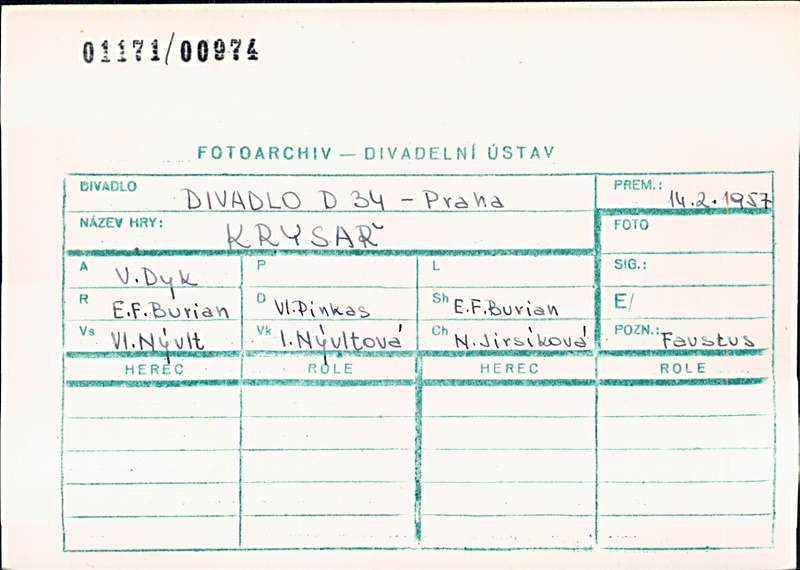 01171/00974
FOTOARCHIV — DIVADELNÍ ÚSTAV
DIVADLO DIVADLO D 34 - Praha PREM.: 14.2.1957
NÁZEV HRY: KRYSAŘ FOTO
A V. Dyk P L SIG.:
R E.F.Burian D Vl.Pinkas Sh E.F.Burian E/
Vs Vl.Nývlt Vk I.Nývltová Ch N.Jirsíková POZN.: Faustus
HEREC ROLE HEREC ROLE